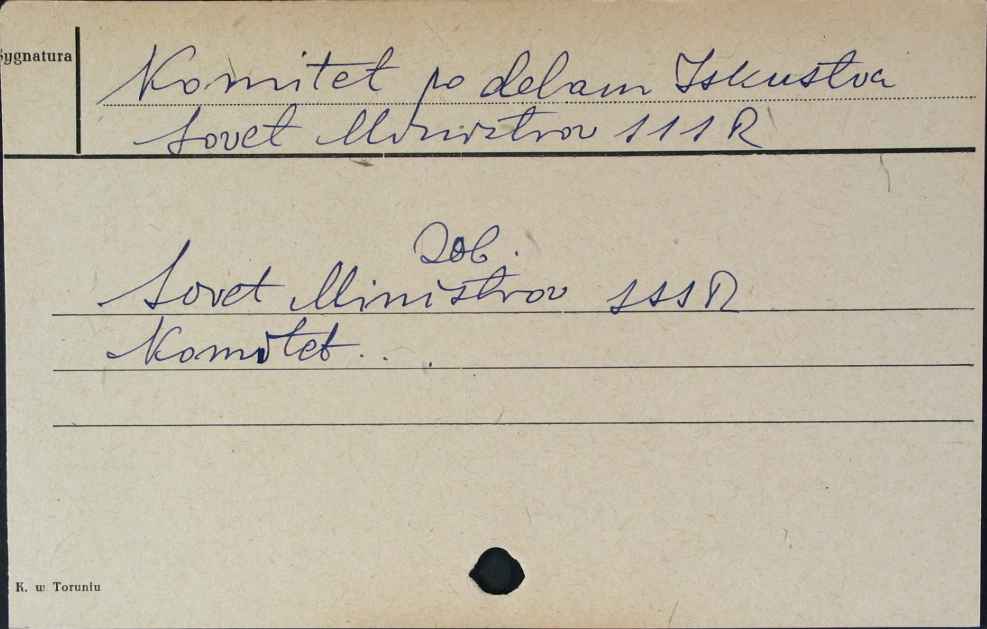 Sygnatura
Komitet po delam Iskustva
Sovet Ministrov SSSR
Zob.
Sovet Ministrov SSSR
Komitet . . .
K. w Toruniu